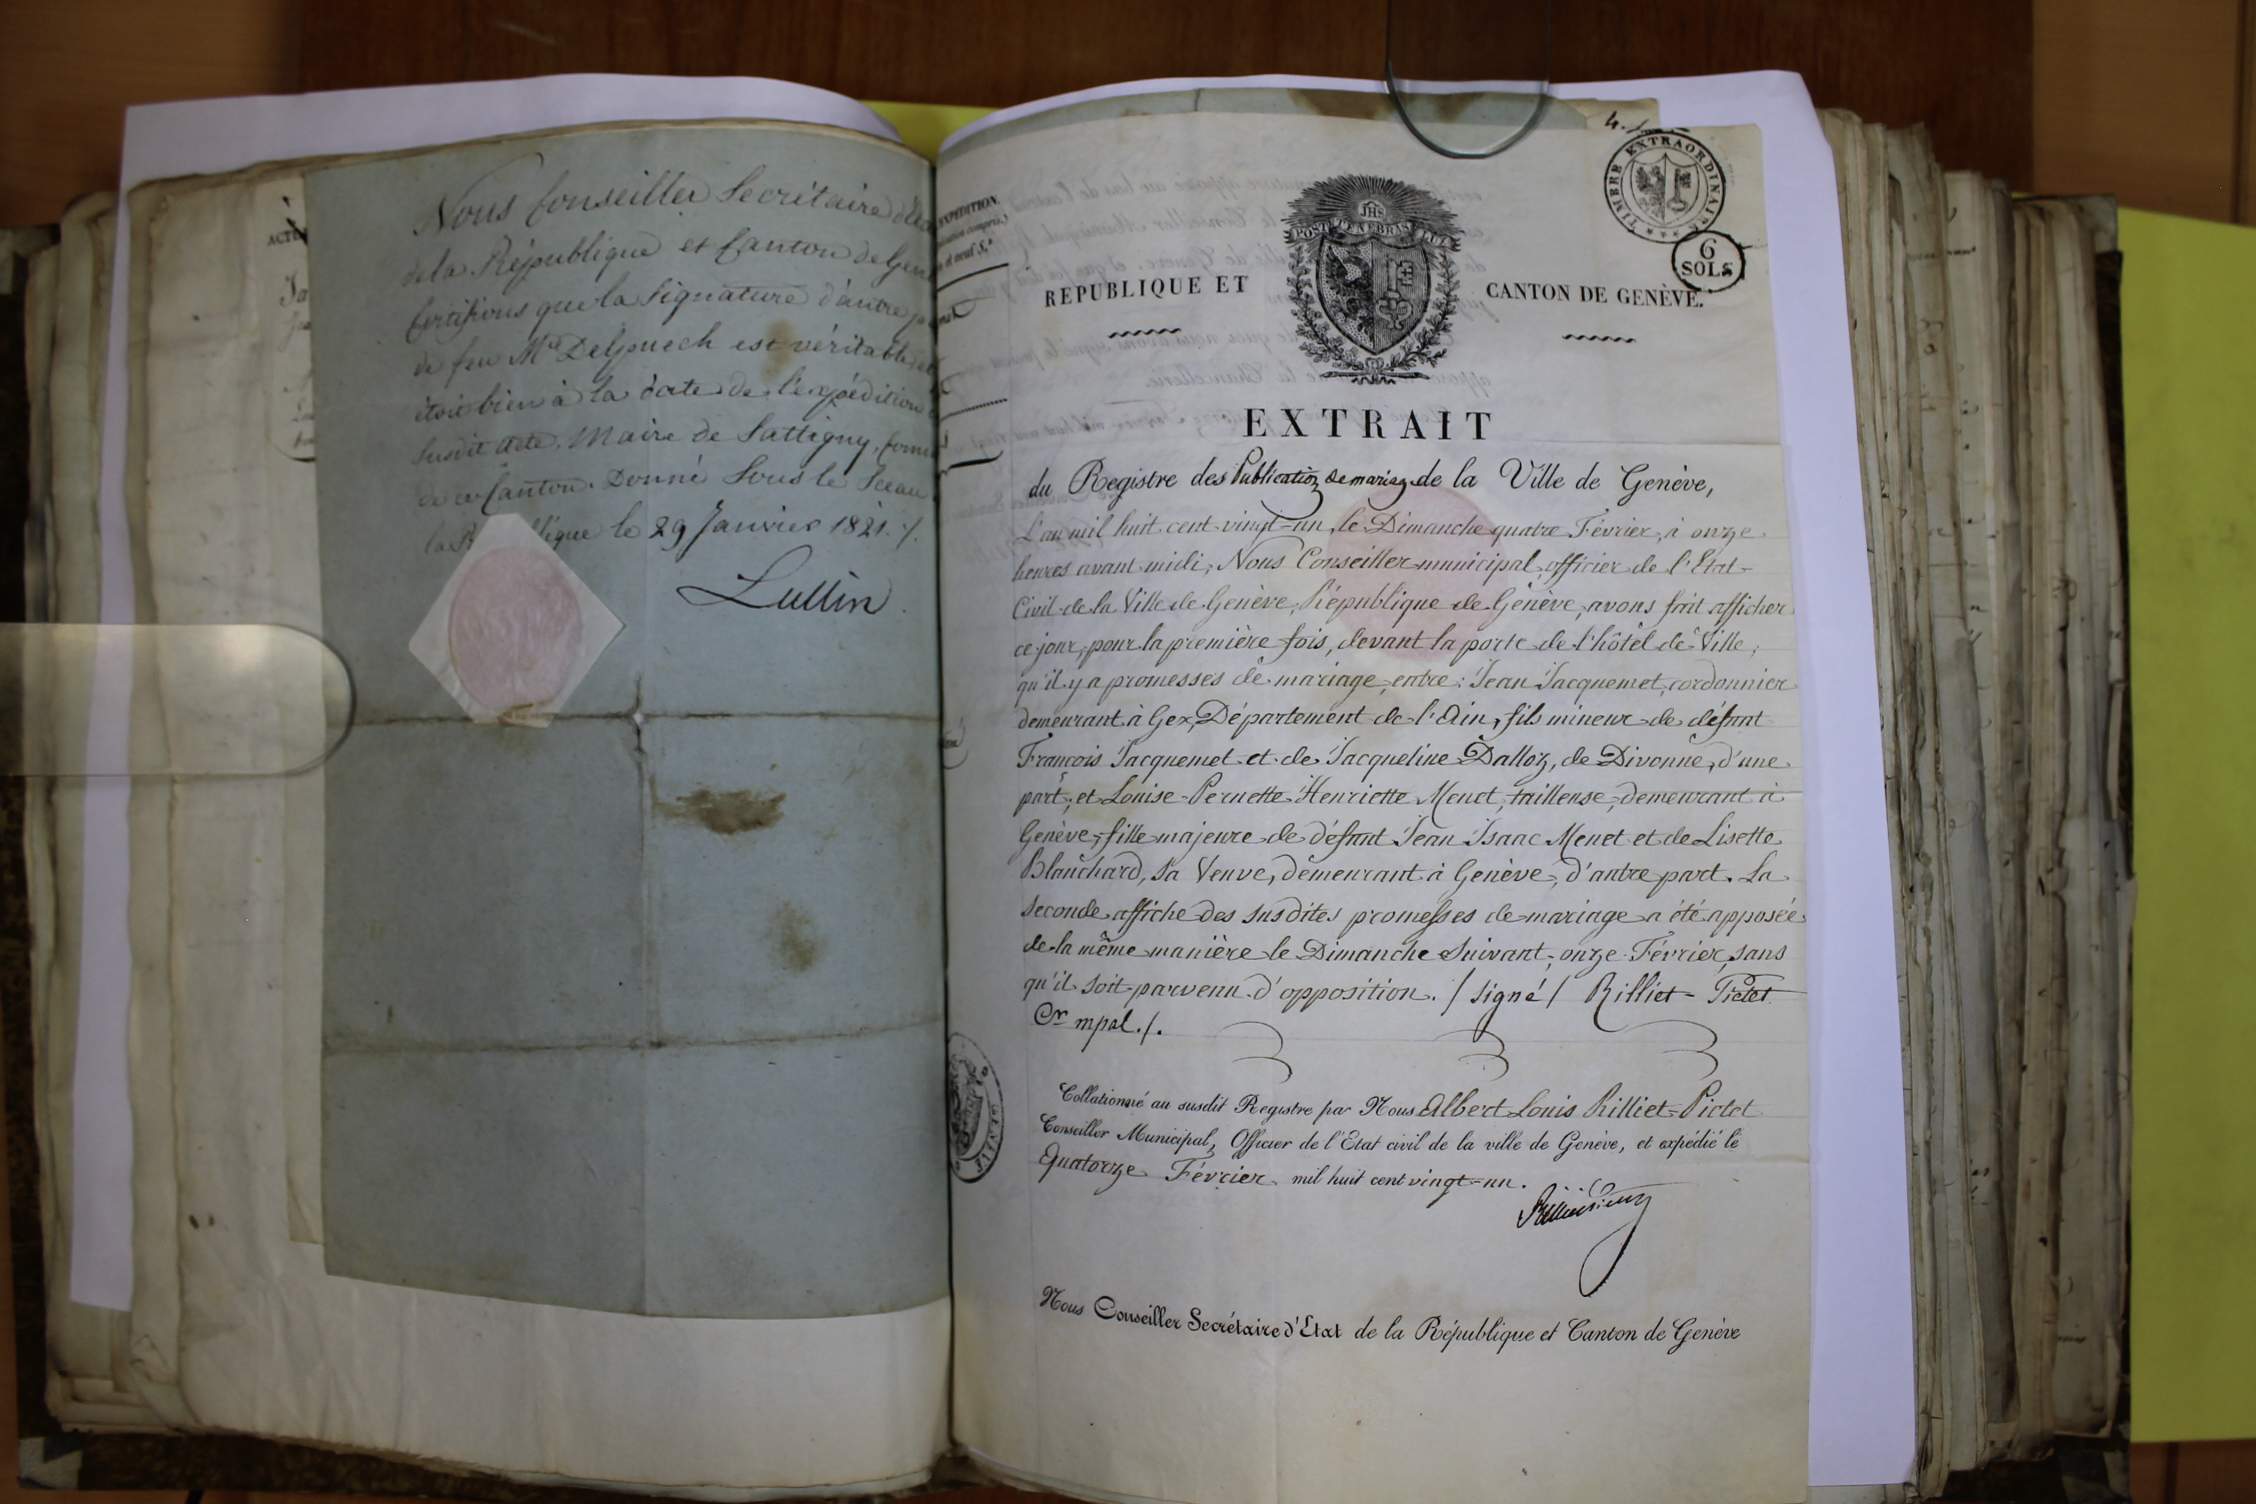 Nous Conseiller Secrétaire d'
de la République et Canton de Gen
Certifions que la Signature d'autre p
de feu Mr Delpuech est véritable, et
étoit bien à la date de l'expédition
susdit acte, Maire de Sattigny,
de ce Canton. Donné sous le Sceau
la République le 29 Janvier 1821 ./.
Lullin
ACTE
EXPÉDITION.
JHS
POST TENEBRAS LUX
TIMBRE EXTRAORDINAIRE
6
SOLS
REPUBLIQUE ET CANTON DE GENÈVE.
EXTRAIT
du Registre des Publication de mariag. de la Ville de Genève,
L'an mil huit cent vingt-un, le Dimanche quatre Février, à onze
heures avant midi; Nous Conseiller municipal, officier de l'Etat-
Civil de la Ville de Genève, République de Genève, avons fait afficher
ce jour, pour la première fois, devant la porte de l'hôtel de Ville,
qu'il y a promesses de mariage, entre: Jean Jacquemet, cordonnier
demeurant à Gex, Département de l'Ain, fils mineur de défunt
François Jacquemet et de Jacqueline Dalloz, de Divonne, d'une
part; et Louise-Pernette Henriette Menet, tailleuse, demeurant à
Genève, fille majeure de défunt Jean Isaac Menet et de Lisette
Blanchard, sa Veuve, demeurant à Genève, d'autre part. La
seconde affiche des susdites promesses de mariage a été apposée
de la même manière le Dimanche suivant, onze Février, sans
qu'il soit parvenu d'opposition. / signé / Rilliet-Pictet
Cer mpal./.
Collationné au susdit Registre par Nous Albert Louis Rilliet-Pictet
Conseiller Municipal, Officier de l'Etat civil de la ville de Genève, et expédié le
Quatorze Février mil huit cent vingt-un.
Nous Conseiller Secrétaire d'Etat de la République et Canton de Genève